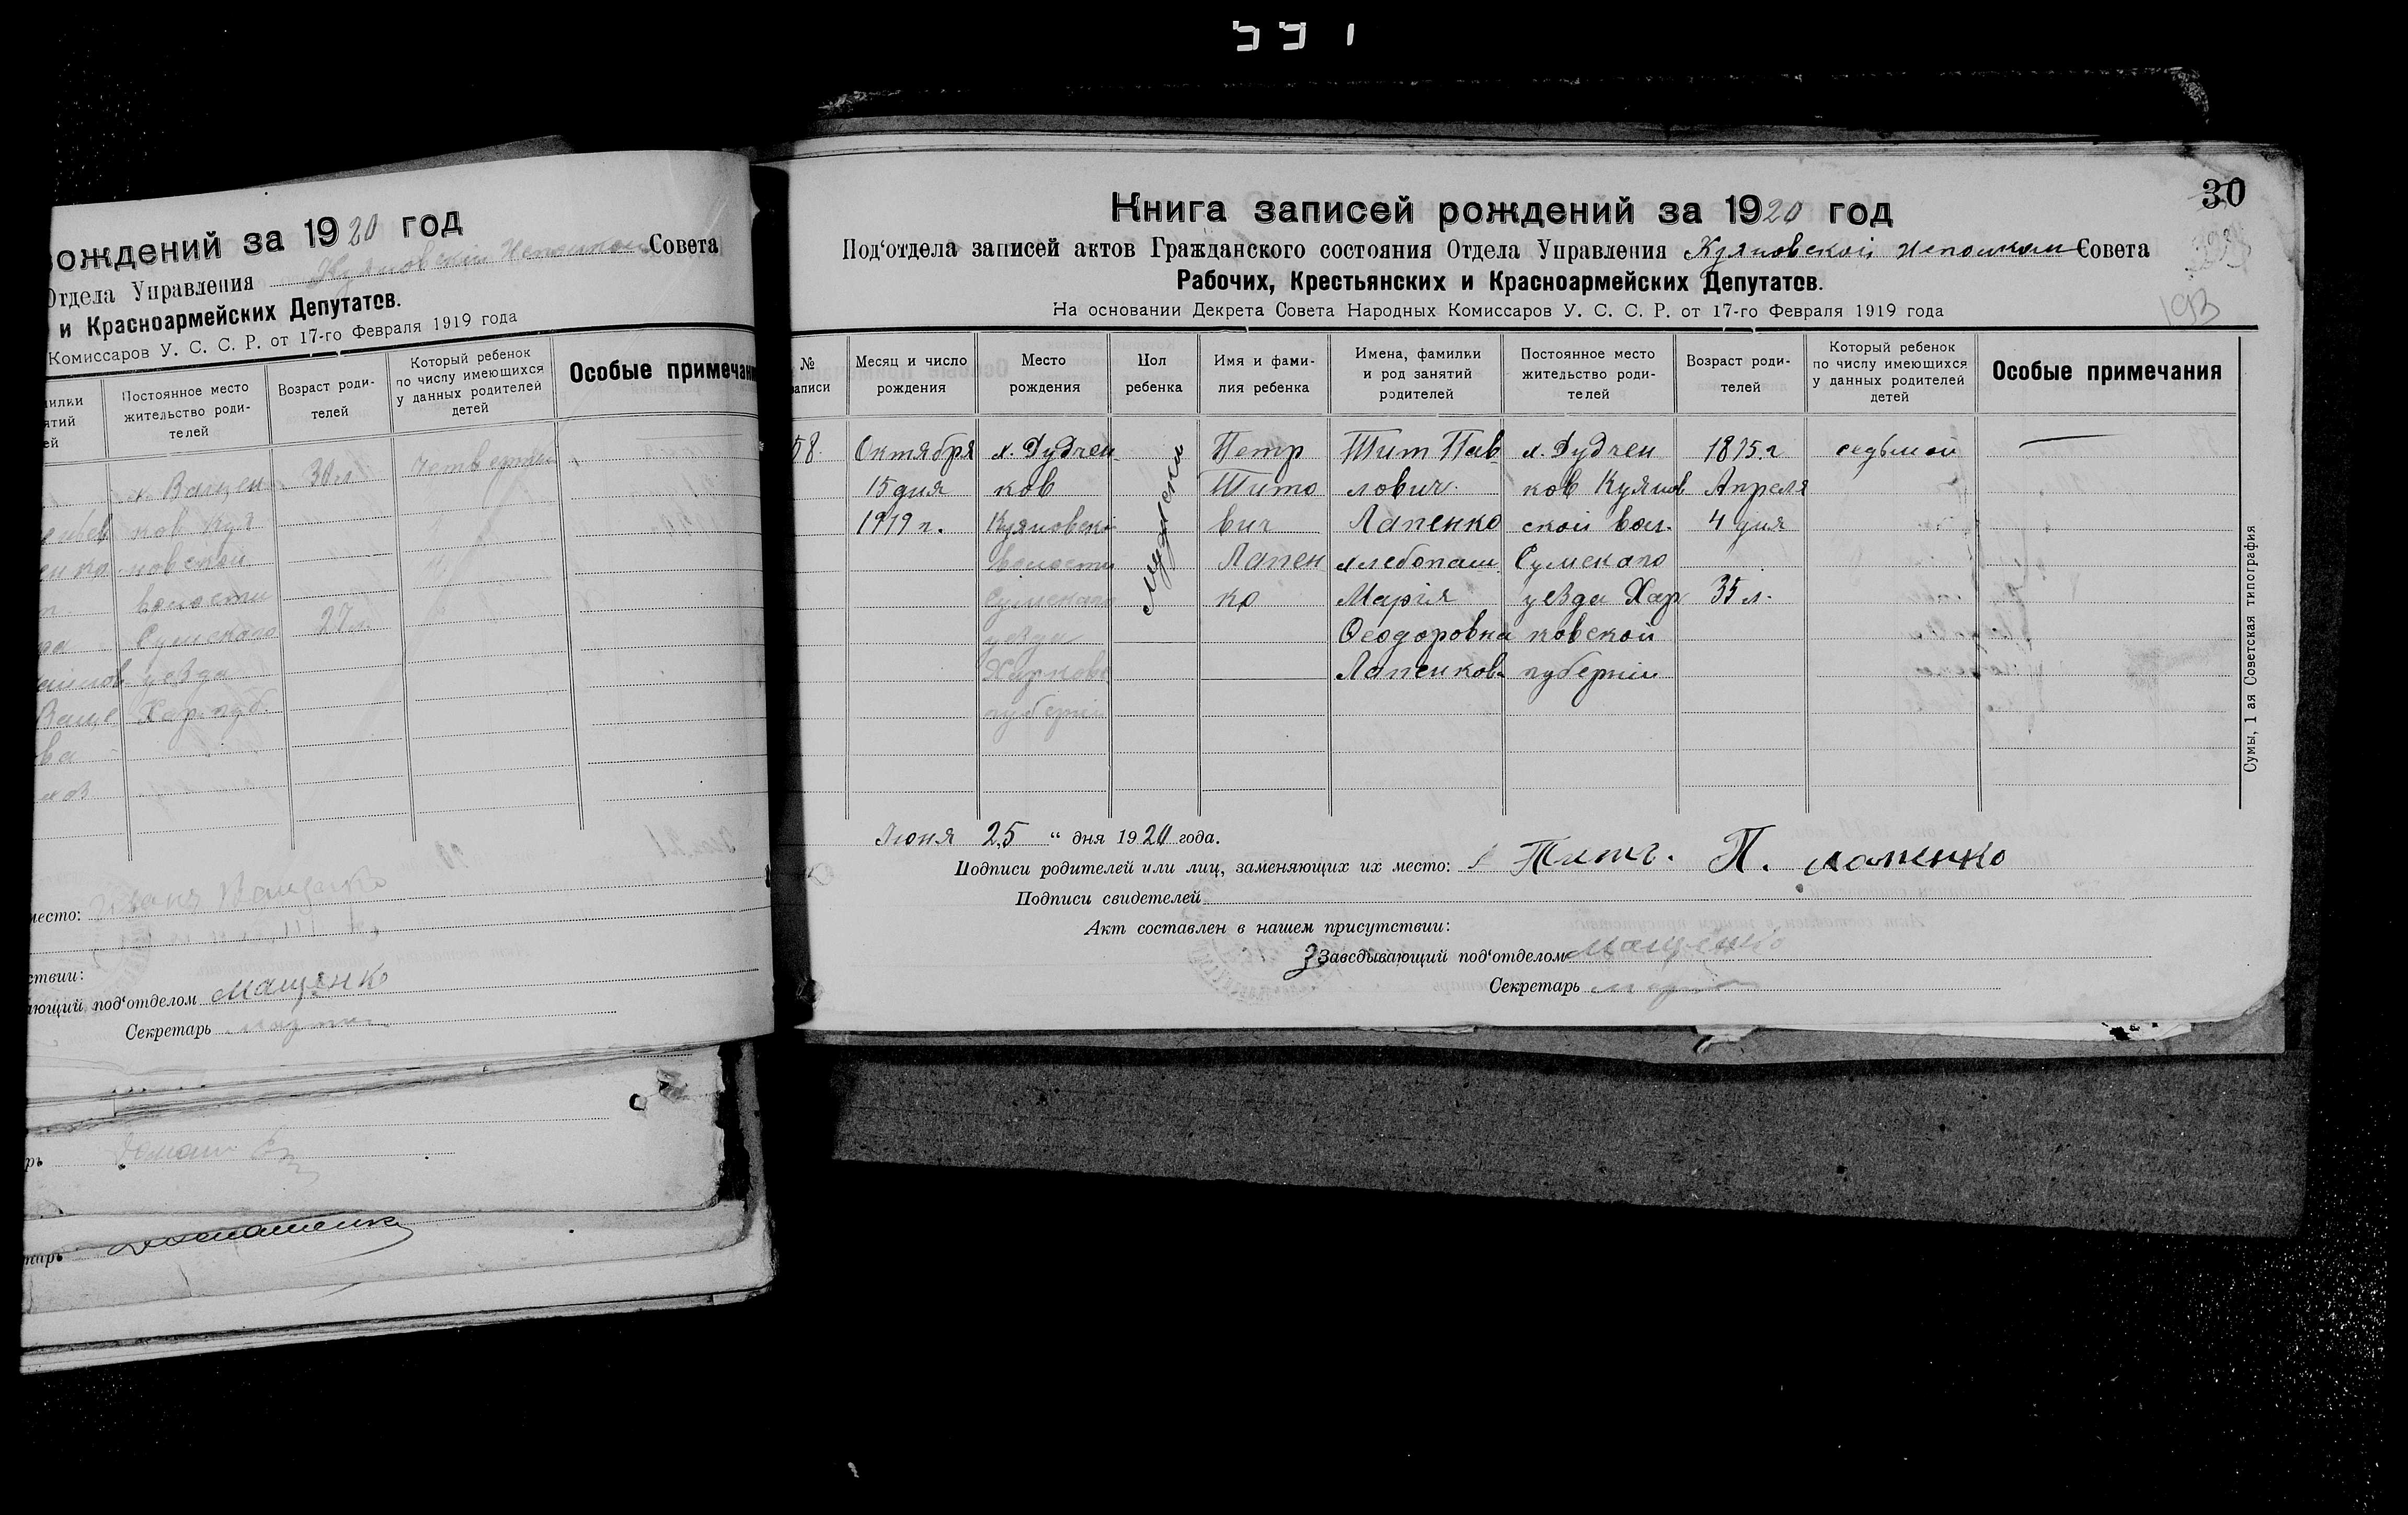 551
рождений за 1920 год
Отдела Управления Куяновской Исполком Совета
и Красноармейских Депутатов.
Комиссаров У. С. С. Р. от 17-го Февраля 1919 года
Постоянное место жительство роди- телей
Возраст роди- телей
Который ребенок по числу имеющихся у данных родителей детей
Особые примечан
х. Ващен
ков Куя
новской
волости
Сумскаго
уезда
Хар. губ.
30 л.
27 л.
четвертый
место: Иван Ващенко
ствии:
ающий под‘отделом Мащенко
Секретарь
рь
тарь Домашенко
30
193
Книга записей рождений за 1920 год
Под‘отдела записей актов Гражданского состояния Отдела Управления Куяновской Исполком Совета
Рабочих, Крестьянских и Красноармейских Депутатов.
На основании Декрета Совета Народных Комиссаров У. С. С. Р. от 17-го Февраля 1919 года
№ записи
Месяц и число рождения
Место рождения
Пол ребенка
Имя и фами- лия ребенка
Имена, фамилии и род занятий родителей
Постоянное место жительство роди- телей
Возраст роди- телей
Который ребенок по числу имеющихся у данных родителей детей
Особые примечания
58.
Октября
15 дня
1919 г.
х. Дудчен
ков
Куяновской
волости
Сумскаго
уезда
Харковс
губернии
мужски
Петр
Тито
вич
Лапен
ко
Тит Пав
лович
Лапенко
хлебопаш.
Мария
Феодоровна
Лапенкова
х. Дудчен
ков Куянов
ской вол.
Сумскаго
уезда Хар
ковской
губернии
1875 г
Апреля
4 дня
35 л.
седьмой
Июня 25 “ дня 1920 года.
Подписи родителей или лиц, заменяющих их место: Титъ. П. лапенко
Подписи свидетелей
Акт составлен в нашем присутствии:
Заведывающий под‘отделом Мащенко
Секретарь
Сумы, 1 ая Советская типография